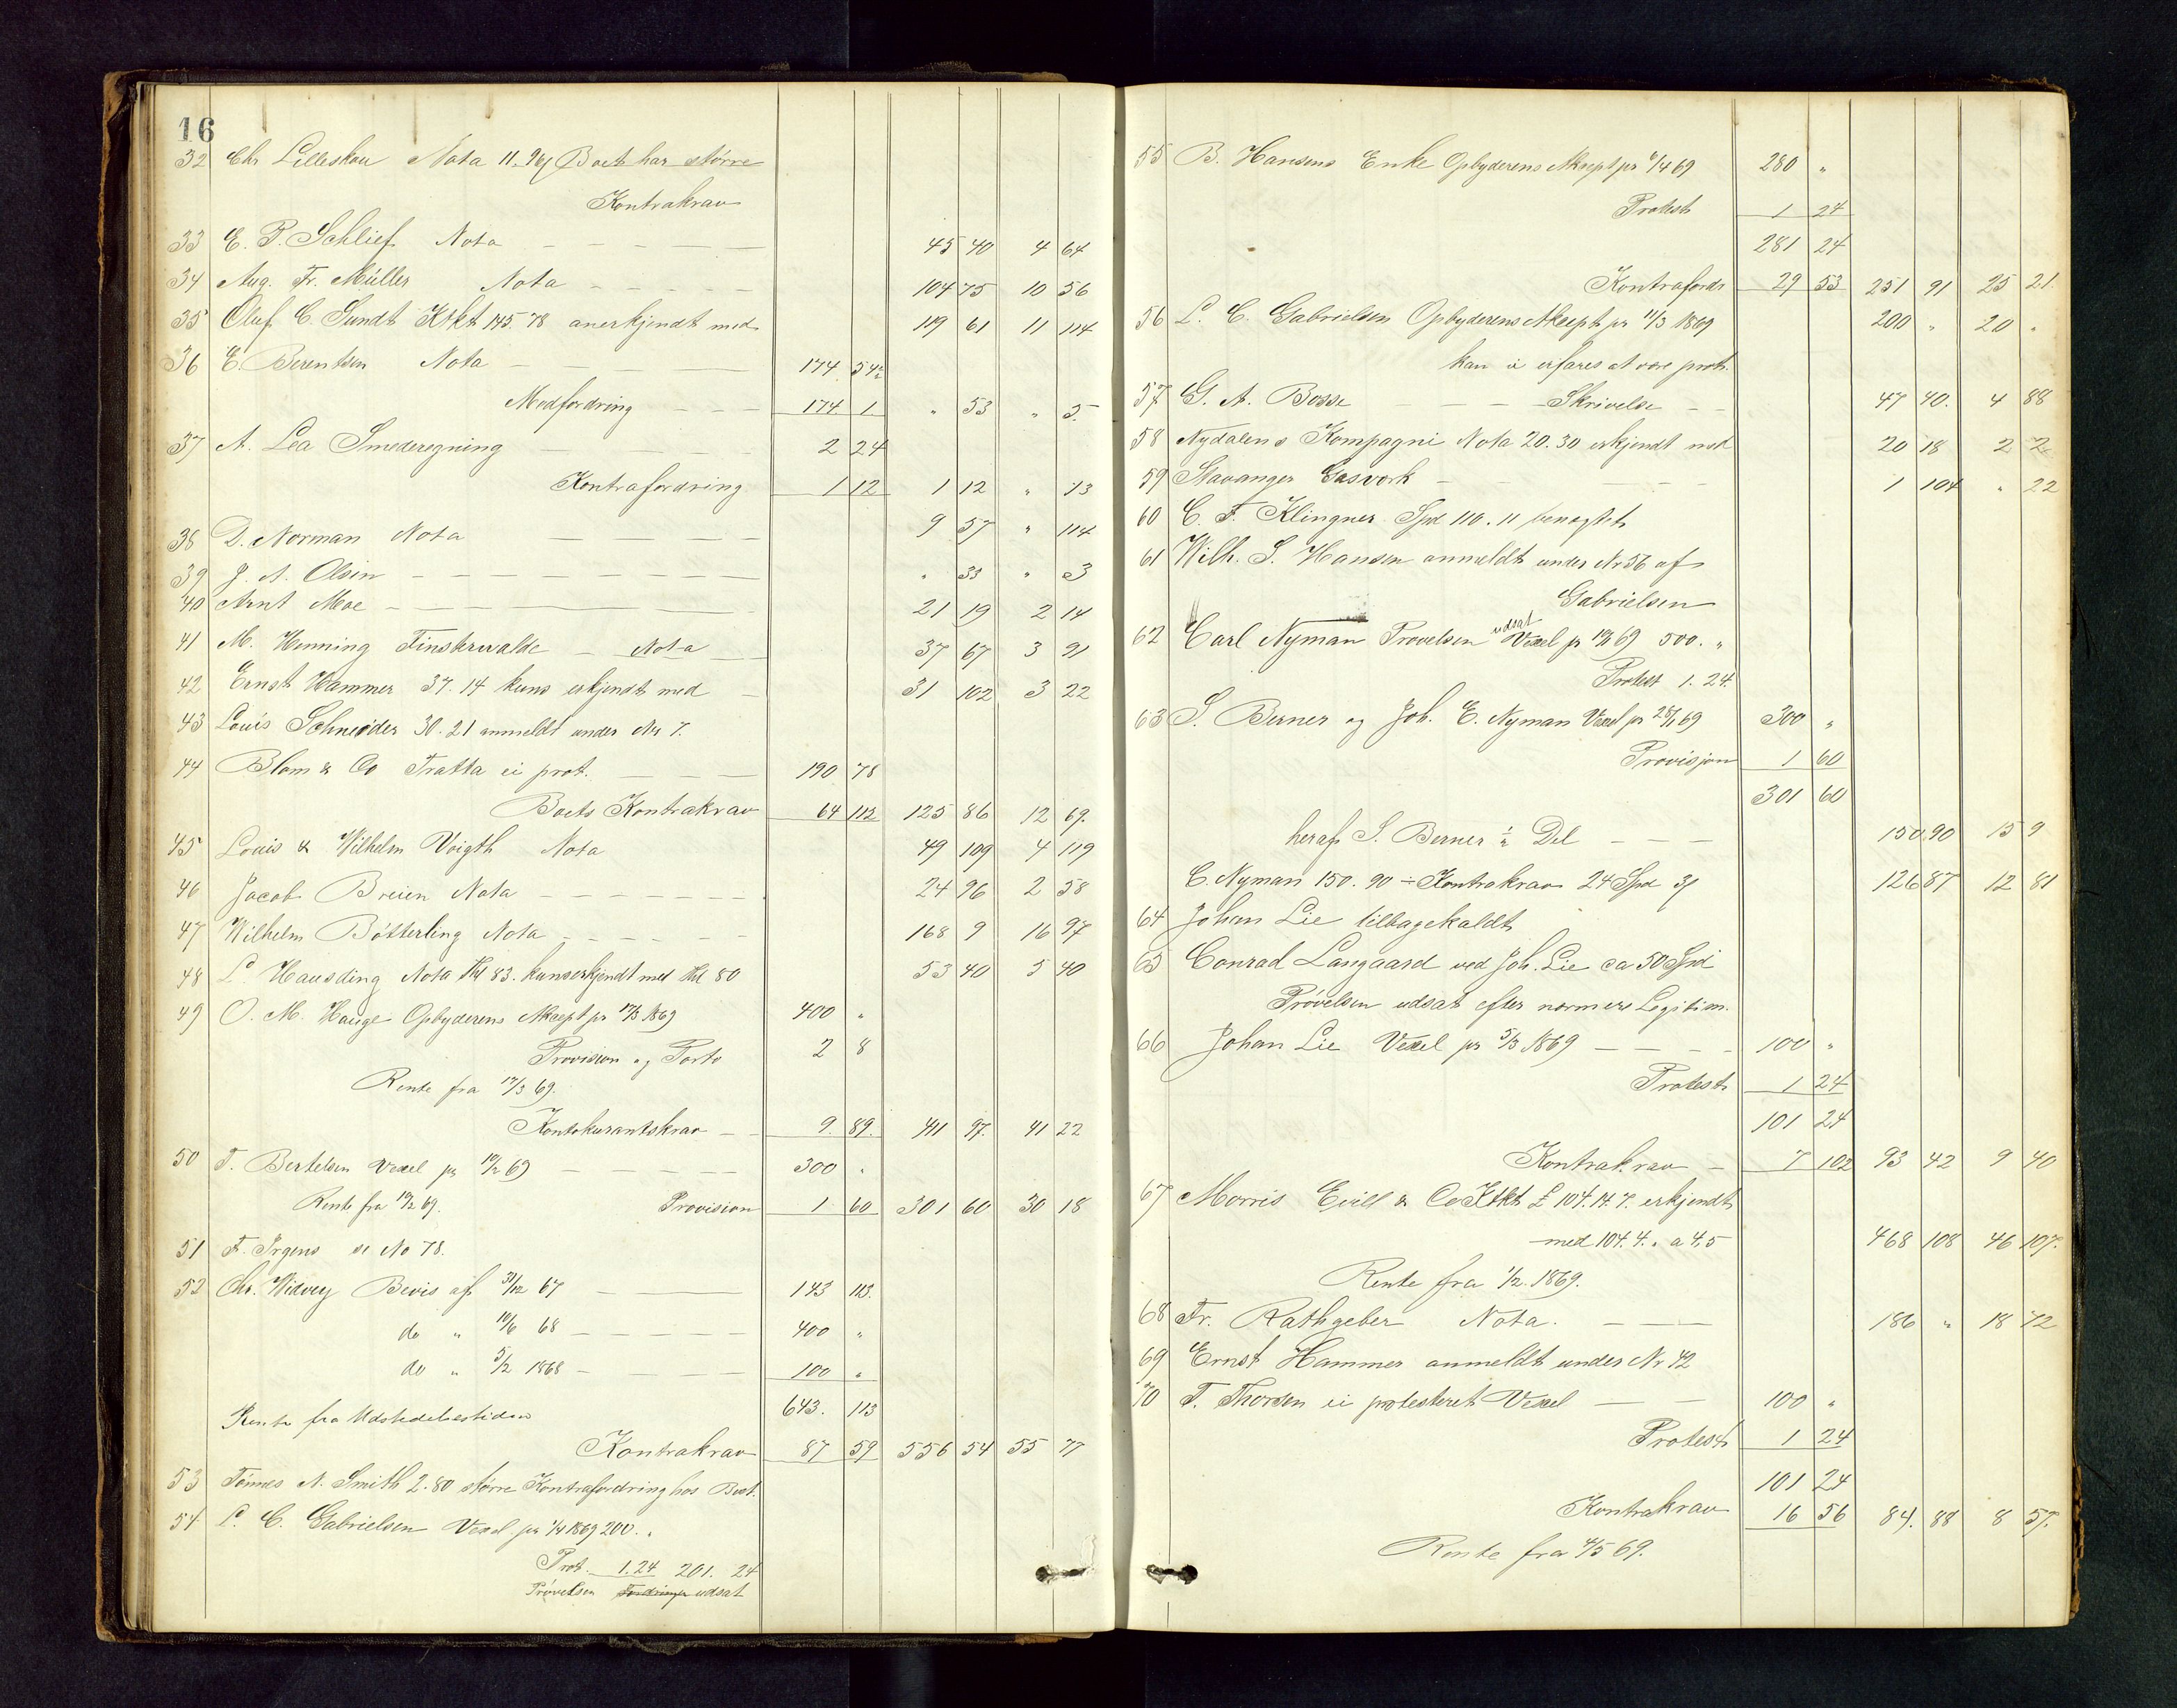 16
32 Chr Lilleskou Nota 11. 96/ Boet har större
Kontrakrav
33 E. P. Schlief Nota — 45 40 4 64
34 Aug. Fr. Müller Nota — 104 75 10 56
35 Oluf C. Sundt Ktkt 145. 78 anerkjendt med 119 61 11 114
36 E. Berentsen Nota — 174 54½
Modfordring — 174 1 " 53 " 5
37 A. Lea Smederegning — 2 24
Kontrafordring 1 12 1 12 " 13
38 D. Norman Nota — 9 57 " 114
39 J. A. Olsen — " 33 " 3
40 Arnt Moe — 21 19 2 14
41 M. Henning Finsterwalde — Nota 37 67 3 91
42 Ernst Hammer 37. 14 kuns erkjendt med — 31 102 3 22
43 Louis Schneider 30. 21 anmeldt under Nr 7.
44 Blom & Co Tratta ei prot. — 190 78
Boets Kontrakrav 64 112 125 86 12 69.
45 Louis & Wilhelm Voigth Nota 49 109 4 119
46 Jacob Breien Nota — 24 96 2 58
47 Wilhelm Bötterling Nota — 168 9 16 97
48 L. Hausding Nota Thl 83. kuns erkjendt med Thl 80 53 40 5 40
49 O. M. Hauge Opbyderens Akcept pr 17/3 1869 400 "
Provision og Porto 2 8
Rente fra 17/3 69.
Kontokurantskrav — 9. 89. 411 97. 41 22
50 T. Bertelsen Vexel pr 19/2 69 — 300 "
Rente fra 19/2 69. Provision 1 60 301 60 30 18
51 F. Irgens se No 78.
52 Chr. Widvey Bevis af 31/12 67 — 143 113.
do " 10/6 68 — 400 "
do " 5/2 1868 — 100 "
Rente fra Udstedelsestiden 643. 113
Kontrakrav 87 59 556 54 55 77
53 Tönnes N. Smith 2. 80 större Kontrafordring hos Boet.
54 L. C. Gabrielsen Vexel pr 1/4 1869 200. "
Prot. 1. 24 201. 24
Prövelsen Fordringen udsat
55 B. Hansens Enke Opbyderens Akcept pr 6/4 69 280 "
Protest 1 24
281 24
Kontrafordr 29 53 251 91 25 21
56 L. C. Gabrielsen Opbyderens Akcept pr 11/3 1869 200 " 20 "
kan ei erfares at være prot.
57 G. A. Bosse — Skrivelse — 47 40. 4 88
58 Nydalens Kompagni Nota 20. 30 erkjendt med 20 18 2 2
59 Stavanger Gasverk — 1 104 " 22
60 C. F. Klingner Spd 110. 11 benegtet
61 Wilh. S. Hansen anmeldt under Nr 56 af
Gabrielsen
62 Carl Nyman Prøvelsen udsat Vexel pr 19/2 69 500. "
Protest 1. 24.
63 S. Berner og Joh. E. Nyman Vexel pr 28/1 69 300 "
Provisjon 1 60
301 60
heraf S. Berner ½ Del — 150. 90 15 9
C. Nyman 150. 90 ÷ Kontrakrav 24 Spd 3/ 126 87 12 81
64 Johan Lie tilbagekaldt
65 Conrad Langaard ved Joh. Lie ca 50 Spd
Prövelsen udsat efter nærmere Legitim.
66 Johan Lie Vexel pr 5/3 1869 — 100 "
Protest 1 24
101 24
Kontrakrav — 7 102 93 42 9 40
67 Morris Evill & Co Ktkt £ 104. 14. 7. erkjendt
med 104. 4. " a 4. 5 468 108 46 107.
Rente fra 1/2. 1869.
68 Fr. Rathgeber Nota. — 186 " 18 72
69 Ernst Hammer anmeldt under Nr 42
70 T. Thorsen ei protesteret Vexel — 100 "
Protest 1 24
101 24
Kontrakrav 16 56 84. 88 8 57.
Rente fra 4/5 69.